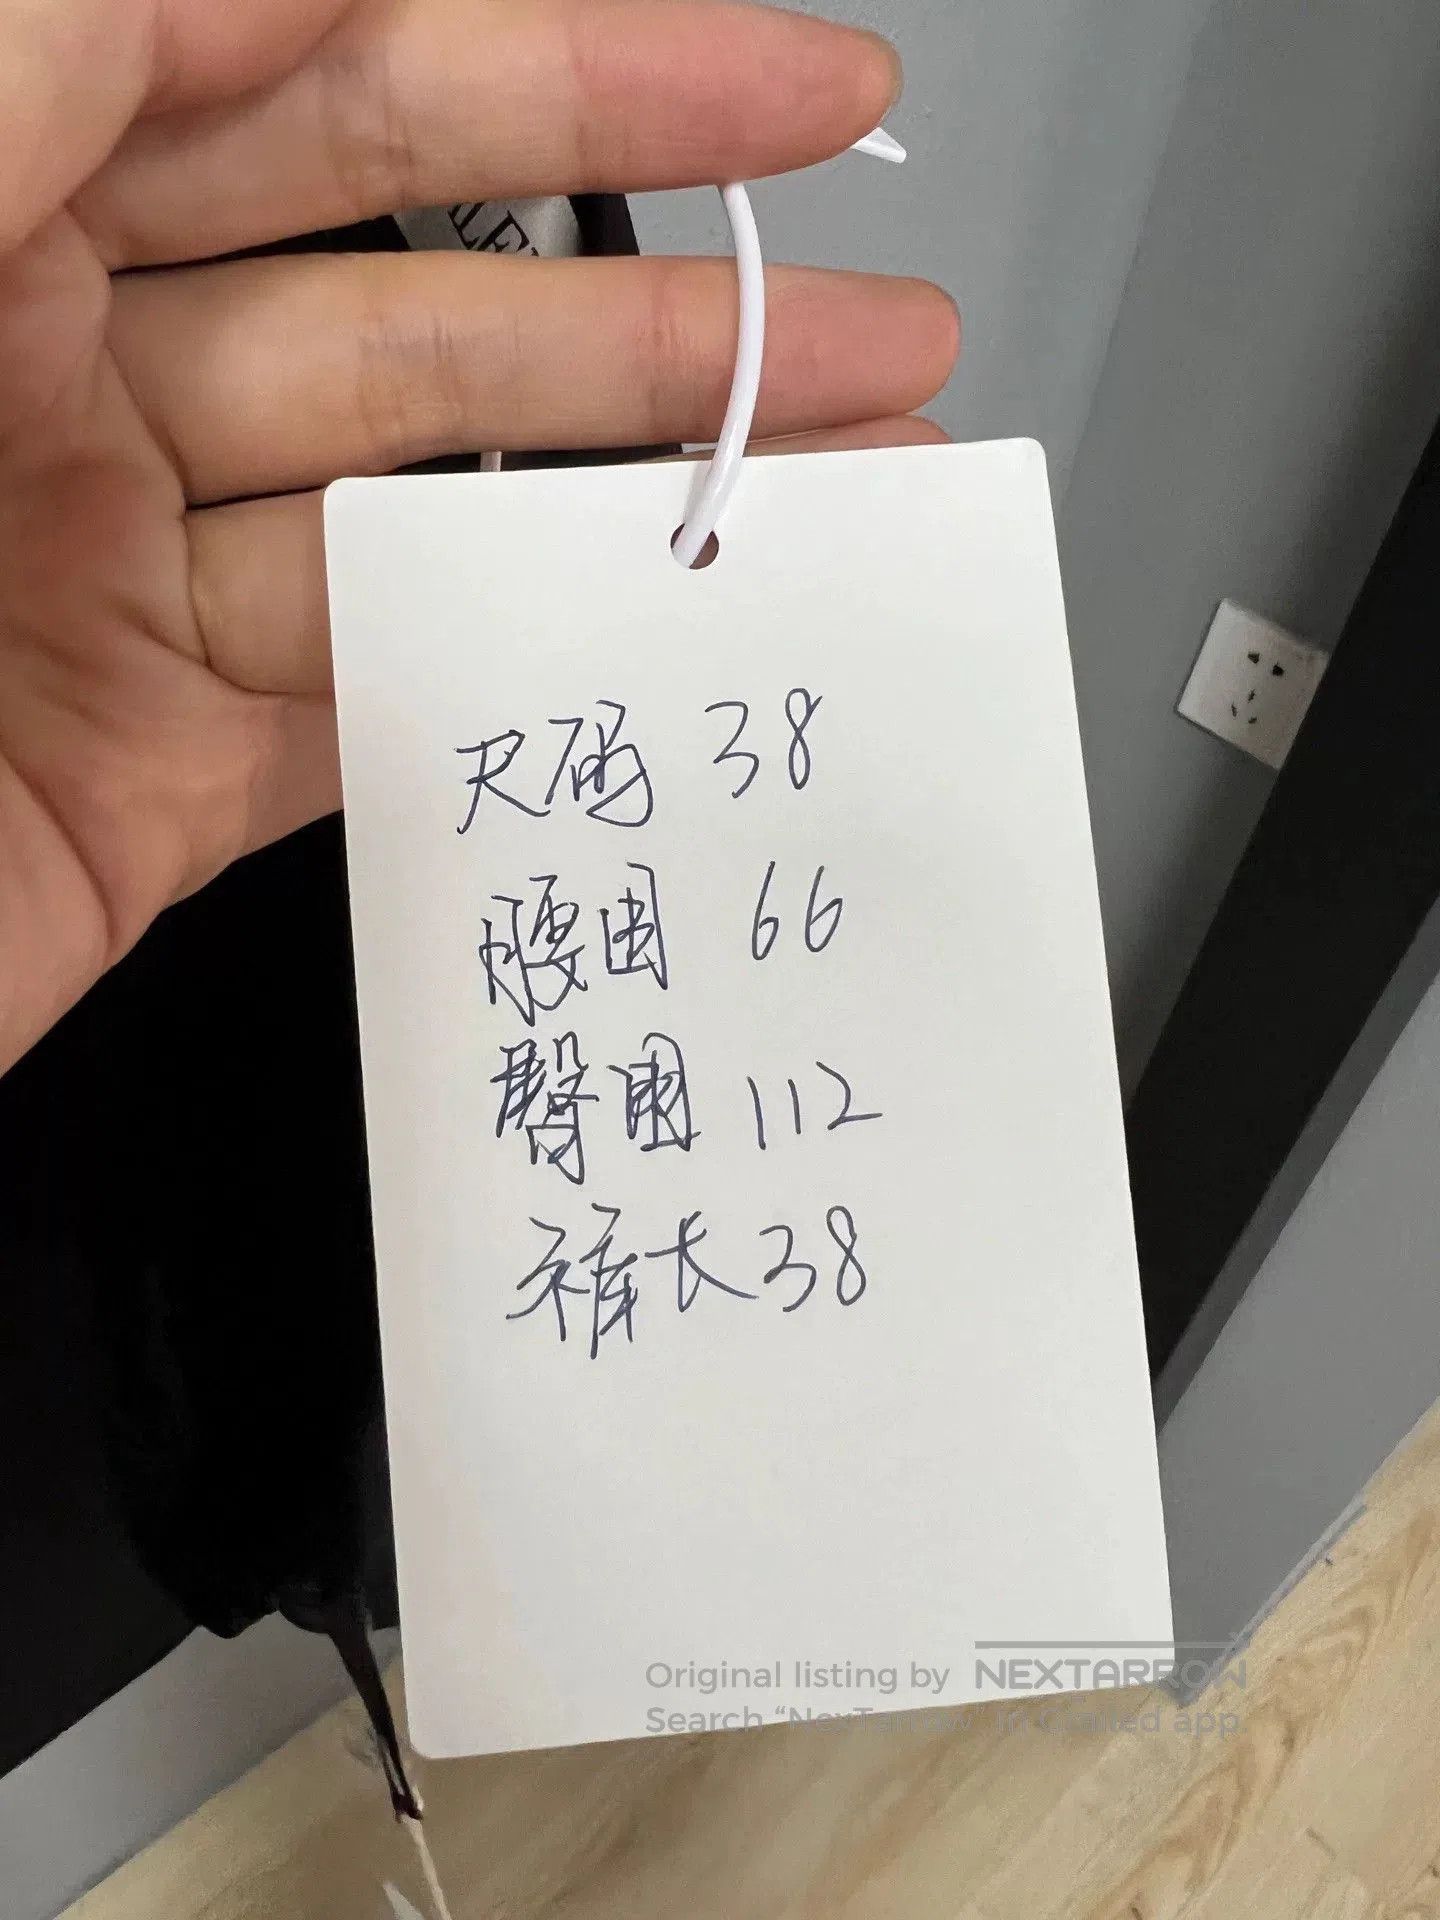 尺码 38
腰围 66
臀围 112
裤长 38
Original listing by NEXTARROW
Search “NexTarrow” in Grailed app.